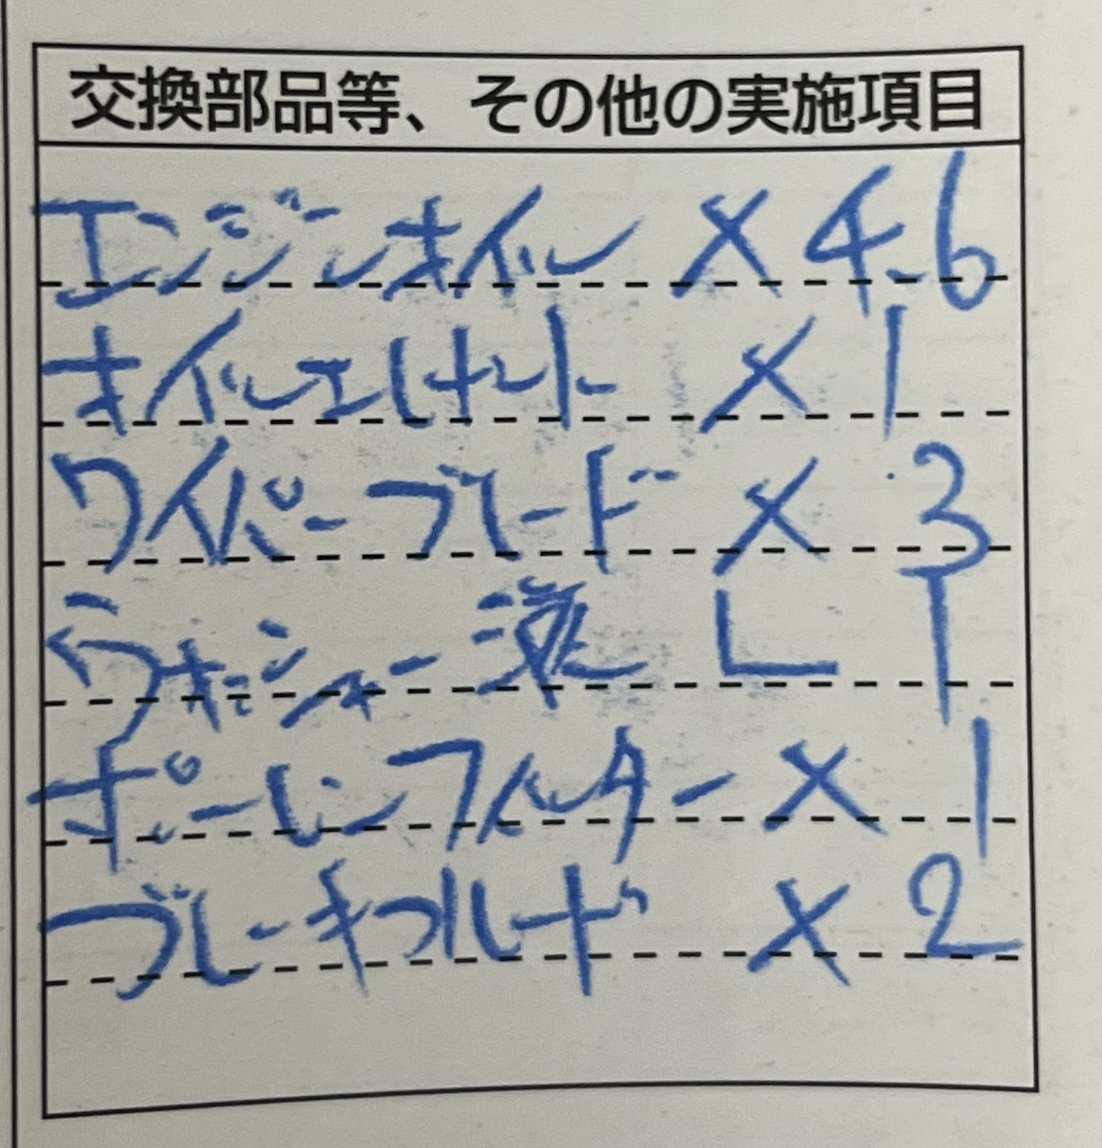 交換部品等、その他の実施項目
エンジンオイル × 4.6
オイルエレメント × 1
ワイパーブレード × 3
ウォッシャー液 L 1
ポーレンフィルター × 1
ブレーキフルード × 2